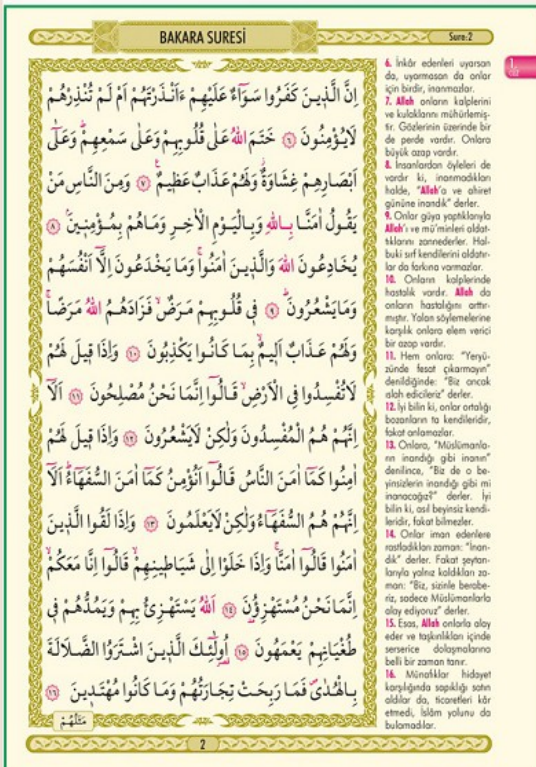 BAKARA SURESİ
Sure:2
اِنَّ الَّذ۪ينَ كَفَرُوا سَوَٓاءٌ عَلَيْهِمْ ءَاَنْذَرْتَهُمْ اَمْ لَمْ تُنْذِرْهُمْ
لَا يُؤْمِنُونَ ﴿٦﴾ خَتَمَ اللّٰهُ عَلٰى قُلُوبِهِمْ وَعَلٰى سَمْعِهِمْۜ وَعَلٰٓى
اَبْصَارِهِمْ غِشَاوَةٌۘ وَلَهُمْ عَذَابٌ عَظ۪يمٌ۟ ﴿٧﴾ وَمِنَ النَّاسِ مَنْ
يَقُولُ اٰمَنَّا بِاللّٰهِ وَبِالْيَوْمِ الْاٰخِرِ وَمَا هُمْ بِمُؤْمِن۪ينَۢ ﴿٨﴾
يُخَادِعُونَ اللّٰهَ وَالَّذ۪ينَ اٰمَنُواۚ وَمَا يَخْدَعُونَ اِلَّٓا اَنْفُسَهُمْ
وَمَا يَشْعُرُونَۜ ﴿٩﴾ ف۪ي قُلُوبِهِمْ مَرَضٌۙ فَزَادَهُمُ اللّٰهُ مَرَضًاۚ
وَلَهُمْ عَذَابٌ اَل۪يمٌۙ بِمَا كَانُوا يَكْذِبُونَ ﴿١٠﴾ وَاِذَا ق۪يلَ لَهُمْ
لَا تُفْسِدُوا فِي الْاَرْضِۙ قَالُٓوا اِنَّمَا نَحْنُ مُصْلِحُونَ ﴿١١﴾ اَلَٓا
اِنَّهُمْ هُمُ الْمُفْسِدُونَ وَلٰكِنْ لَا يَشْعُرُونَ ﴿١٢﴾ وَاِذَا ق۪يلَ لَهُمْ
اٰمِنُوا كَمَٓا اٰمَنَ النَّاسُ قَالُٓوا اَنُؤْمِنُ كَمَٓا اٰمَنَ السُّفَهَٓاءُۜ اَلَٓا
اِنَّهُمْ هُمُ السُّفَهَٓاءُ وَلٰكِنْ لَا يَعْلَمُونَ ﴿١٣﴾ وَاِذَا لَقُوا الَّذ۪ينَ
اٰمَنُوا قَالُٓوا اٰمَنَّاۚ وَاِذَا خَلَوْا اِلٰى شَيَاط۪ينِهِمْۙ قَالُٓوا اِنَّا مَعَكُمْۙ
اِنَّمَا نَحْنُ مُسْتَهْزِؤُ۫نَ ﴿١٤﴾ اَللّٰهُ يَسْتَهْزِئُ بِهِمْ وَيَمُدُّهُمْ ف۪ي
طُغْيَانِهِمْ يَعْمَهُونَ ﴿١٥﴾ اُو۬لٰٓئِكَ الَّذ۪ينَ اشْتَرَوُا الضَّلَالَةَ
بِالْهُدٰىۖ فَمَا رَبِحَتْ تِجَارَتُهُمْ وَمَا كَانُوا مُهْتَد۪ينَ ﴿١٦﴾
مَثَلُهُمْ
2
6. İnkâr edenleri uyarsan
da, uyarmasan da onlar
için birdir, inanmazlar.
7. Allah onların kalplerini
ve kulaklarını mühürlemiş-
tir. Gözlerinin üzerinde bir
de perde vardır. Onlara
büyük azap vardır.
8. İnsanlardan öyleleri de
vardır ki, inanmadıkları
halde, "Allah'a ve ahiret
gününe inandık" derler.
9. Onlar güya yaptıklarıyla
Allah'ı ve mü'minleri aldat-
tıklarını zannederler. Hal-
buki sırf kendilerini aldatır-
lar da farkına varmazlar.
10. Onların kalplerinde
hastalık vardır. Allah da
onların hastalığını arttır-
mıştır. Yalan söylemelerine
karşılık onlara elem verici
bir azap vardır.
11. Hem onlara: "Yeryü-
zünde fesat çıkarmayın"
denildiğinde: "Biz ancak
ıslah edicileriz" derler.
12. İyi bilin ki, onlar ortalığı
bozanların ta kendileridir,
fakat anlamazlar.
13. Onlara, "Müslümanla-
rın inandığı gibi inanın"
denilince, "Biz de o be-
yinsizlerin inandığı gibi mi
inanacağız?" derler. İyi
bilin ki, asıl beyinsiz kendi-
leridir, fakat bilmezler.
14. Onlar iman edenlere
rastladıkları zaman: "İnan-
dık" derler. Fakat şeytan-
larıyla yalnız kaldıkları za-
man: "Biz, sizinle berabe-
riz, sadece Müslümanlarla
alay ediyoruz" derler.
15. Esas, Allah onlarla alay
eder ve taşkınlıkları içinde
serserice dolaşmalarına
belli bir zaman tanır.
16. Münafıklar hidayet
karşılığında sapıklığı satın
aldılar da, ticaretleri kâr
etmedi, İslâm yolunu da
bulamadılar.